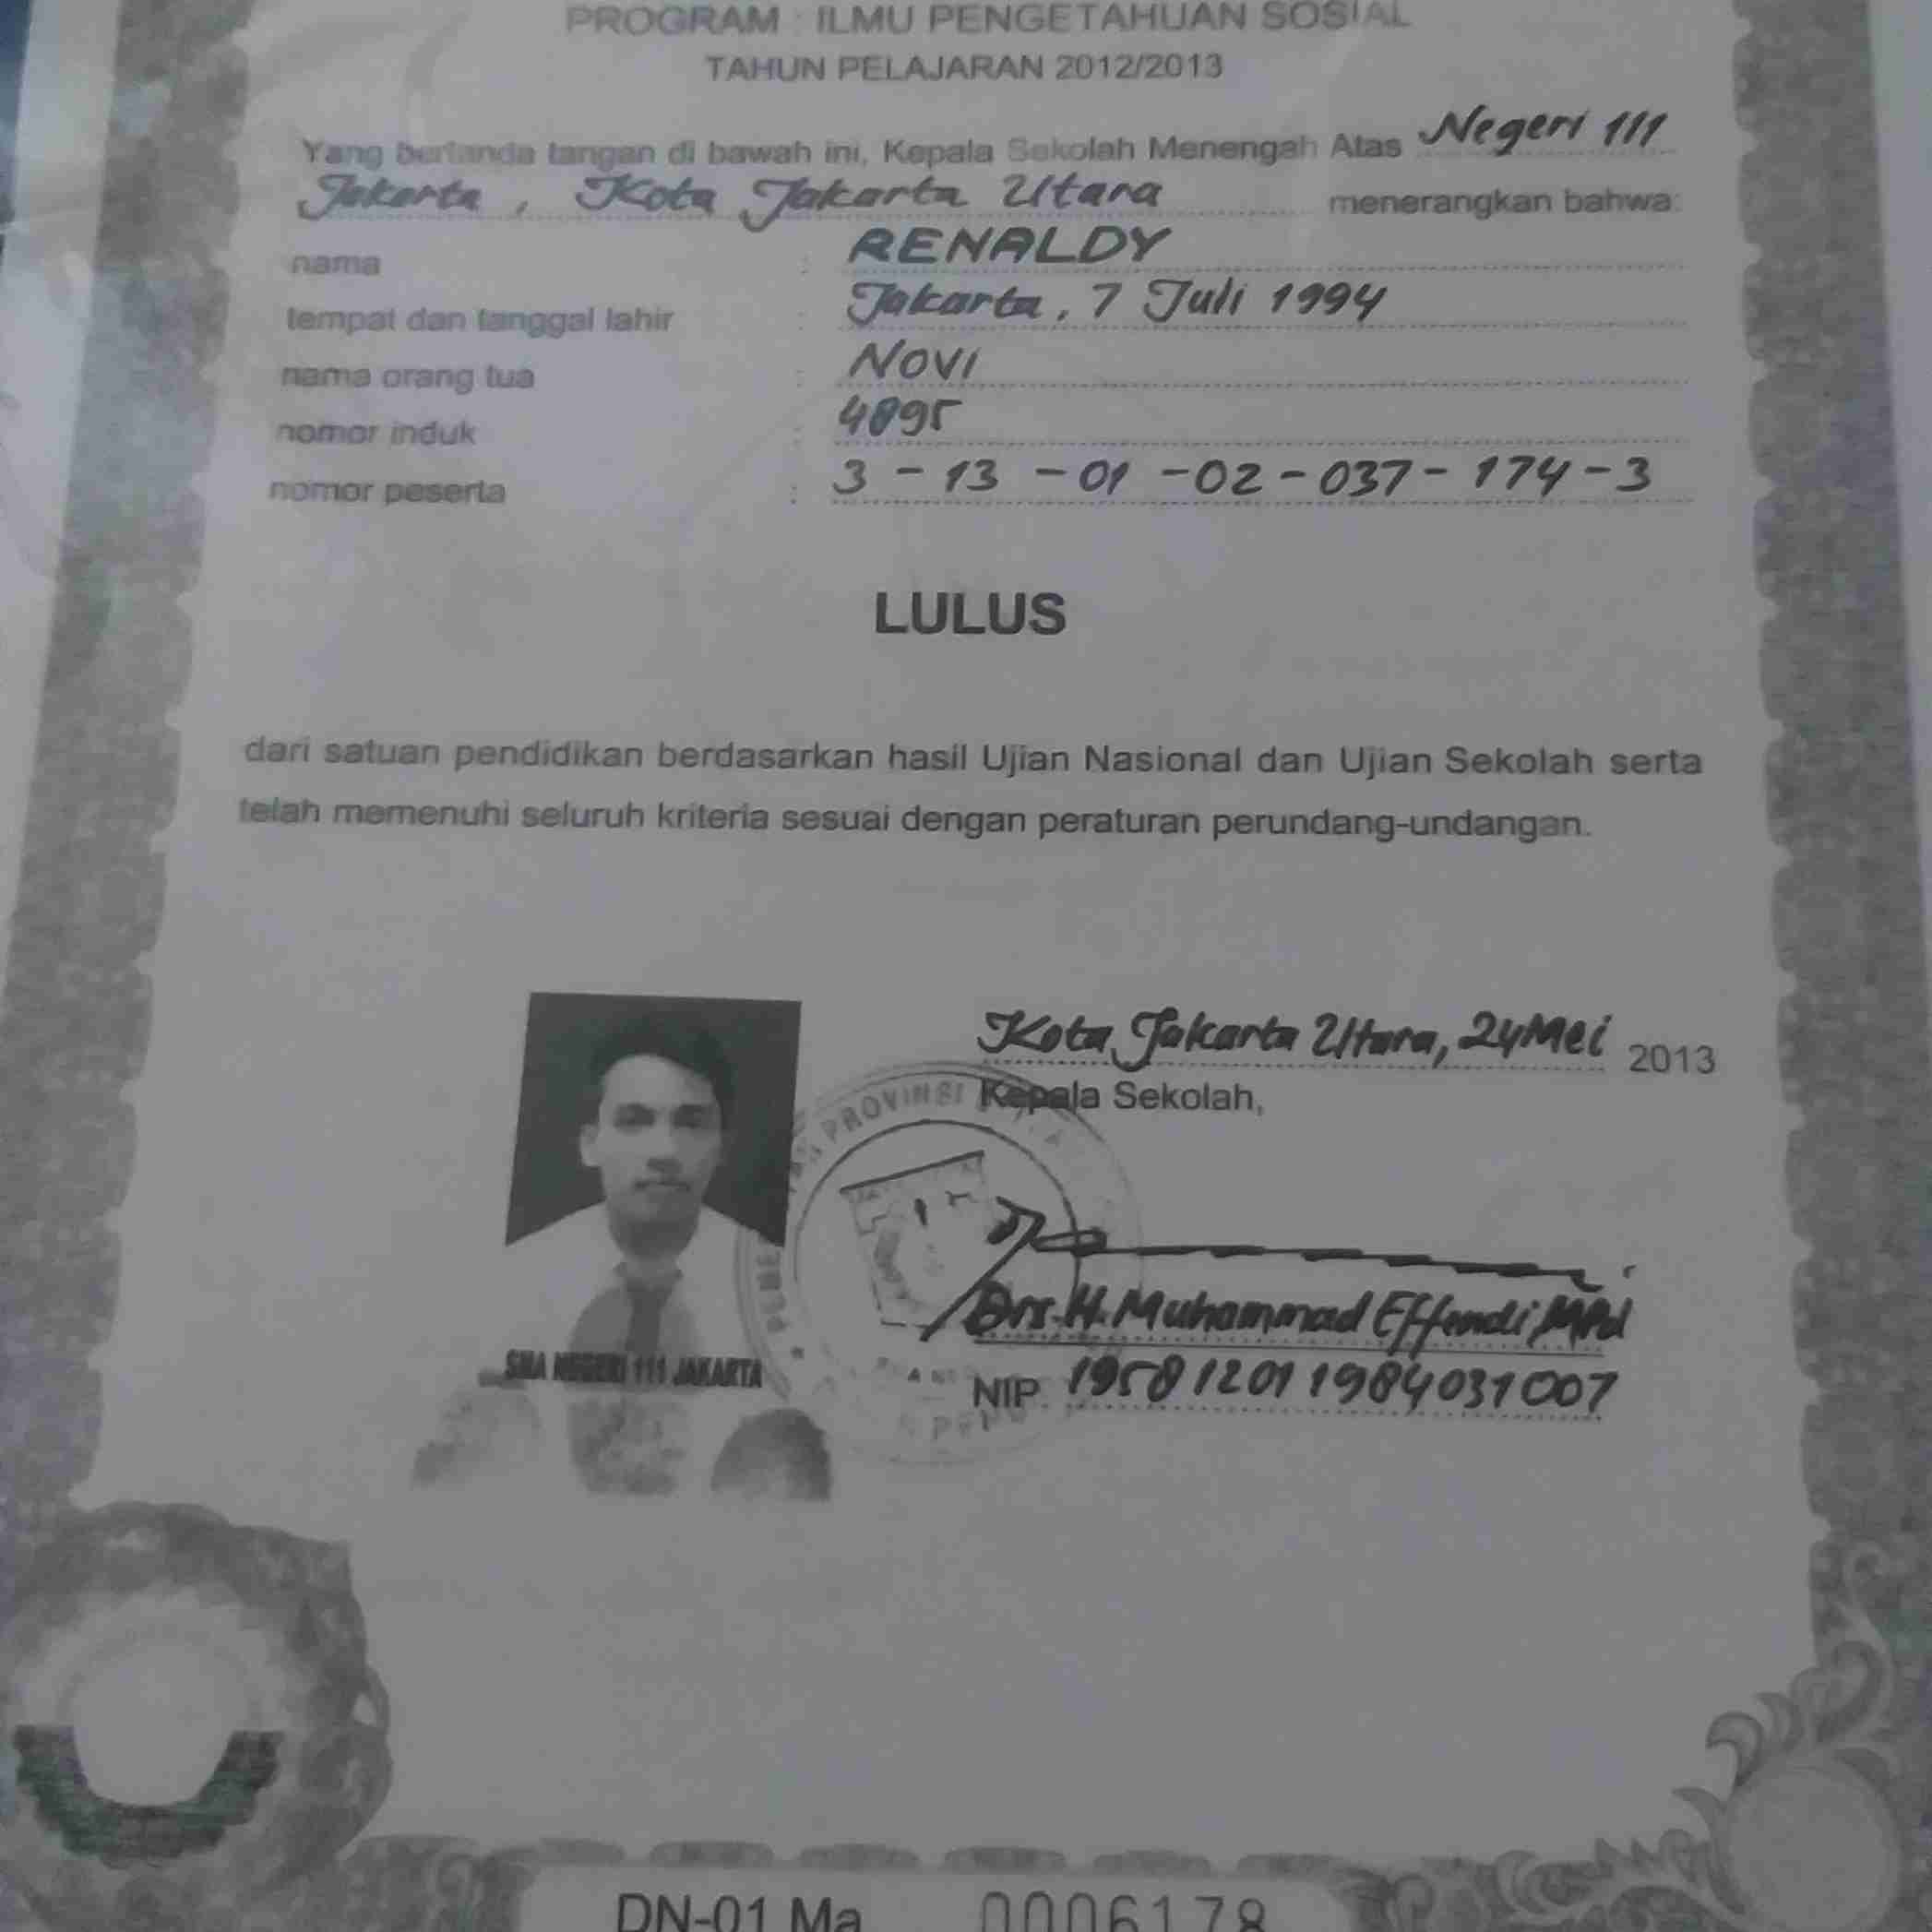 PROGRAM : ILMU PENGETAHUAN SOSIAL
TAHUN PELAJARAN 2012/2013
Yang bertanda tangan di bawah ini, Kepala Sekolah Menengah Atas Negeri 111
Jakarta, Kota Jakarta Utara menerangkan bahwa:
nama : RENALDY
tempat dan tanggal lahir : Jakarta, 7 Juli 1994
nama orang tua : NOVI
nomor induk : 4895
nomor peserta : 3 - 13 - 01 - 02 - 037 - 174 - 3
LULUS
dari satuan pendidikan berdasarkan hasil Ujian Nasional dan Ujian Sekolah serta
telah memenuhi seluruh kriteria sesuai dengan peraturan perundang-undangan.
Kota Jakarta Utara, 24 Mei 2013
Kepala Sekolah,
PROVINSI
Drs. H. Muhammad Effendi MPd
SMA NEGERI 111 JAKARTA
NIP. 19581201 1984031007
DN-01 Ma 0006178